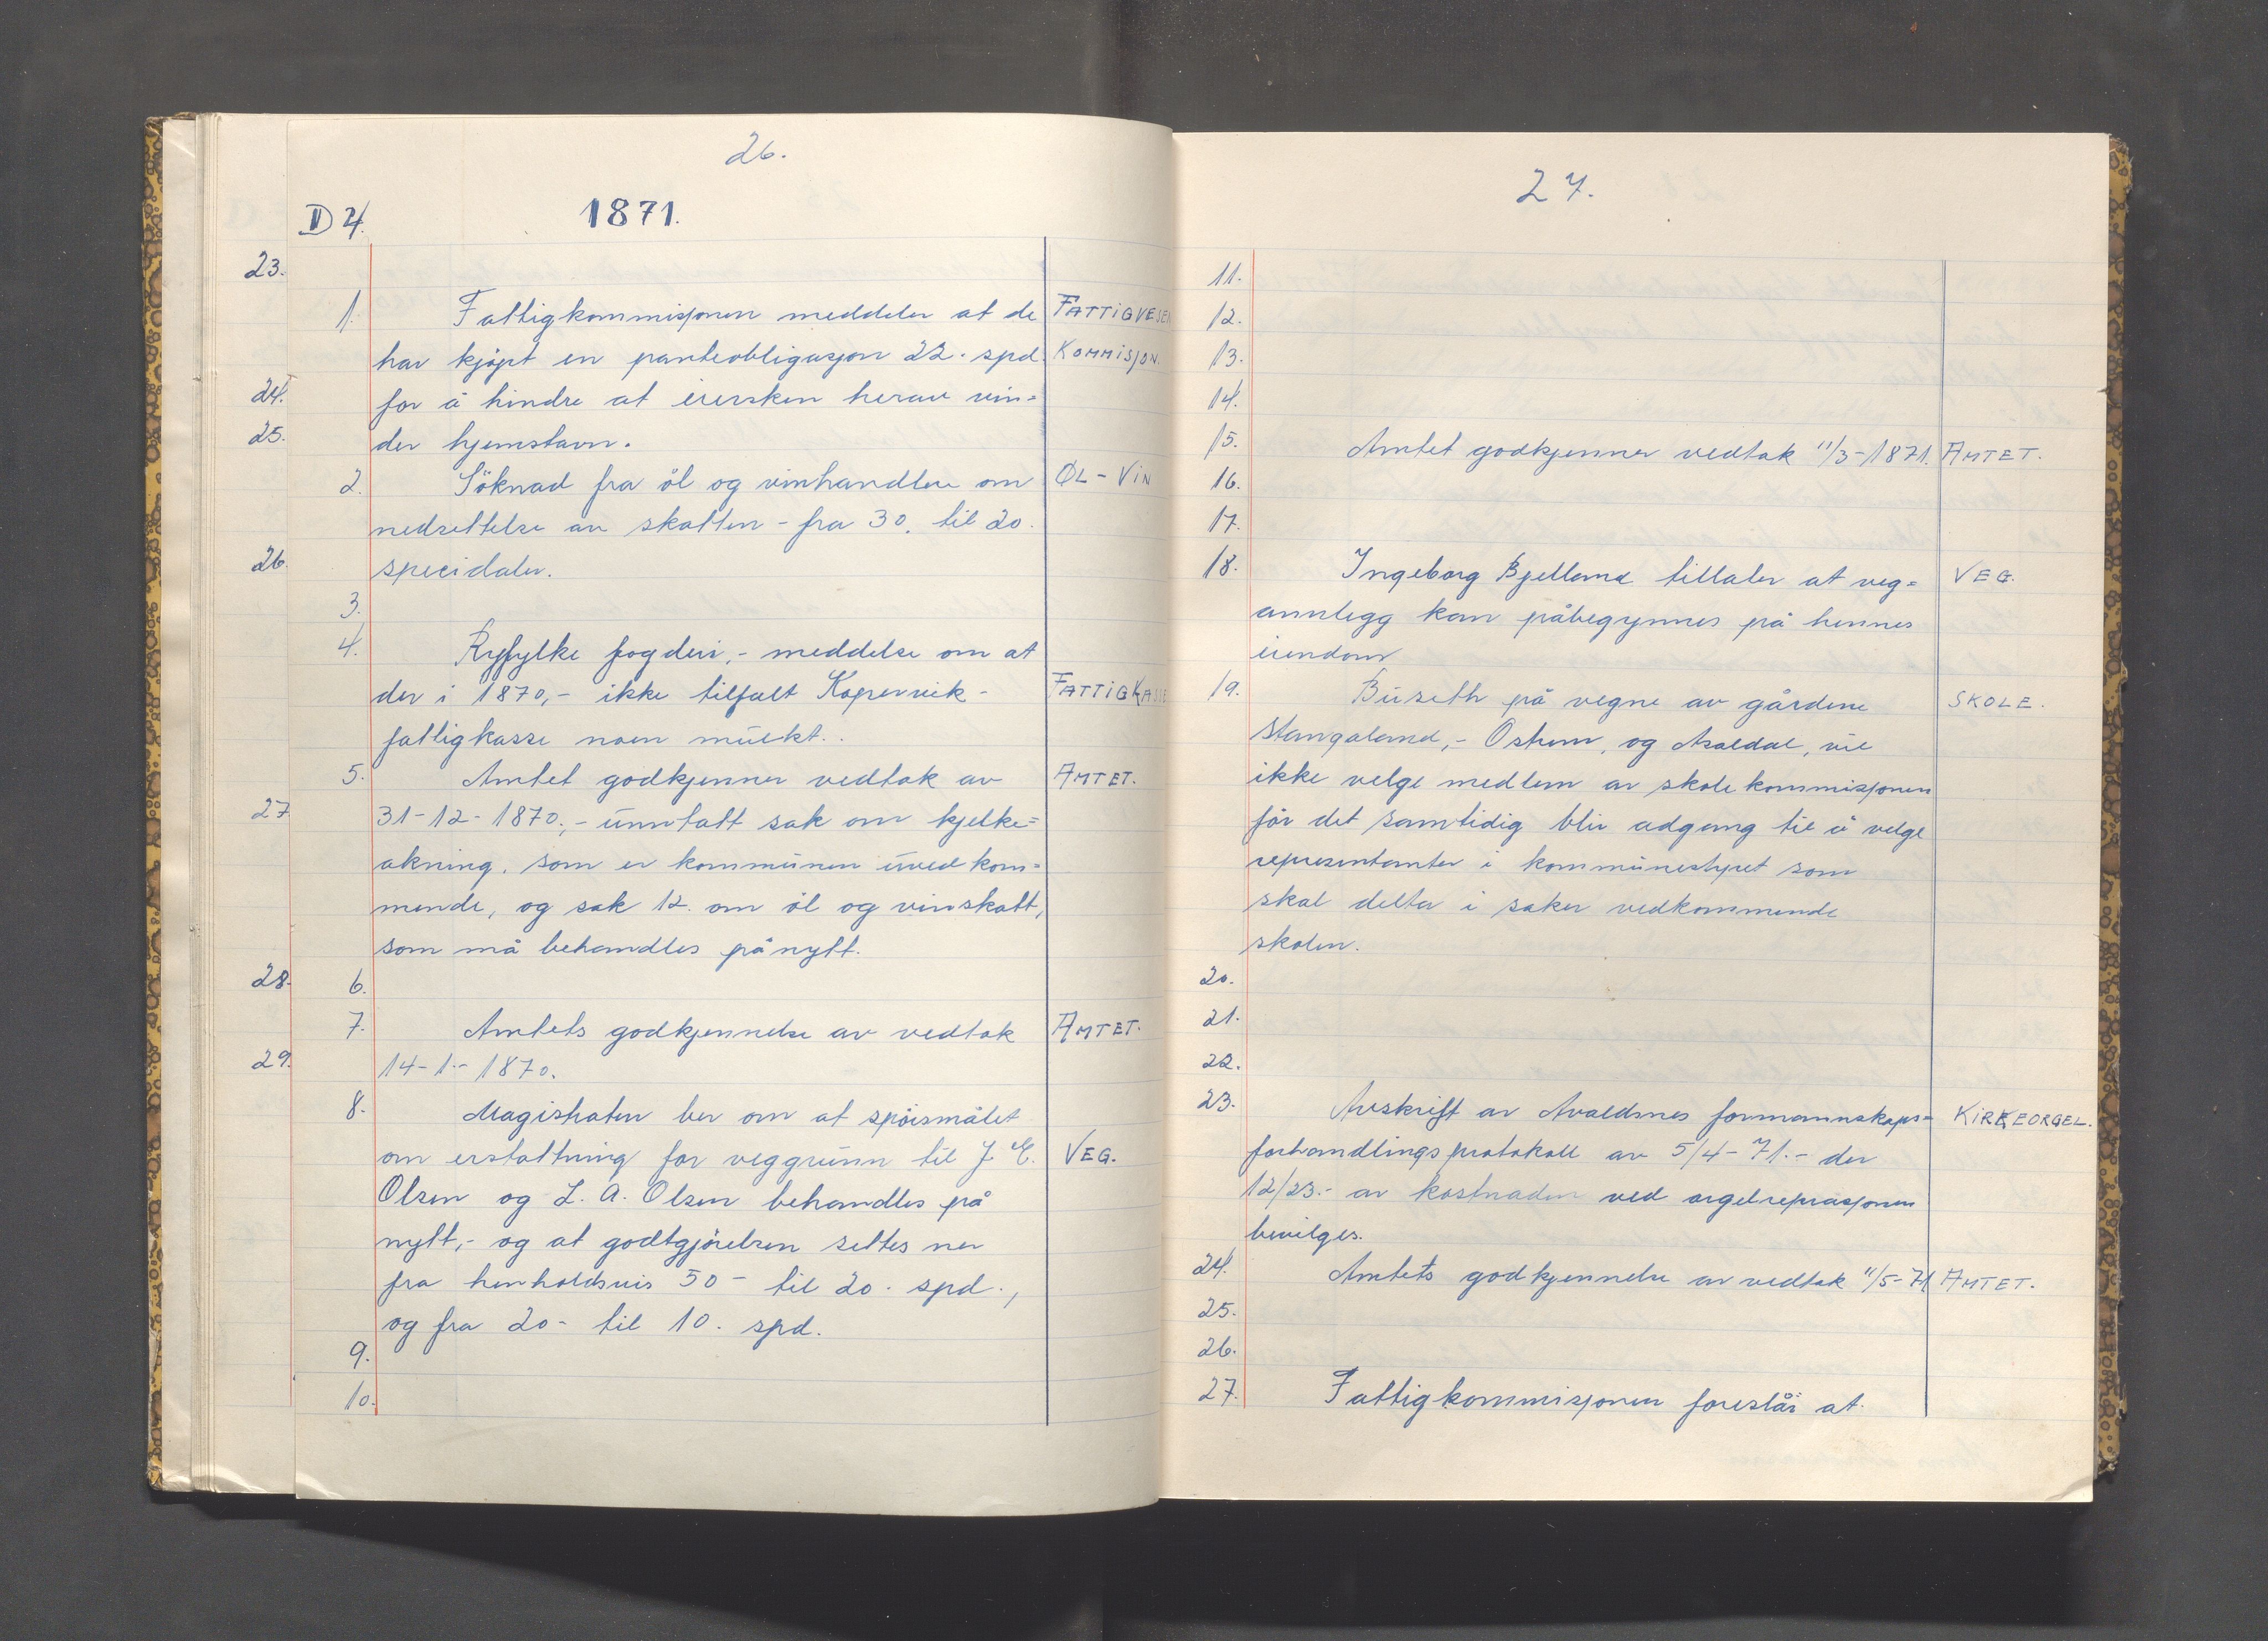 26.
D 4. 1871.
23.
1. Fattigkommisjonen meddeler at de FATTIGVESEN
har kjøpt en panteobligasjon 22. spd. KOMMISJON.
24. for å hindre at eiersken herav vin=
25. der hjemstavn.
2. Söknad fra öl og vinhandlere om ØL - VIN
nedsettelse av skatten - fra 30. til 20.
26. specidaler.
3.
4. Ryfylke fogderi,- meddelse om at
der i 1870,- ikke tilfalt Kopervik- FATTIGKASSE
fattigkasse noen mulkt..
5. Amtet godkjenner vedtak av AMTET.
27 31-12-1870.,- unntatt sak om kjelke=
akning. som er kommunen uvedkom=
mende, og sak 12. om öl og vinskatt,
som må behandles på nytt.
28. 6.
7. Amtets godkjennelse av vedtak AMTET.
29. 14-1.- 1870.
8. Magistraten ber om at spörsmålet
om erstattning for veggrunn til J. E. VEG.
Olsen og L. A. Olsen behandles på
nytt,- og at godtgjörelsen settes ner
fra henholdsvis 50- til 20. spd.,
og fra 20- til 10. spd.
9.
10.
27.
11.
12.
13.
14.
15. Amtet godkjenner vedtak 11/3-1871. AMTET.
16.
17.
18. Ingeborg Bjelland tillater at veg= VEG.
annlegg kan påbegynnes på hennes
eiendom
19. Buseth på vegne av gårdene SKOLE.
Stangaland,- Østrem, og Åsaldal, vil
ikke velge medlem av skolekommisjonen
för det samtidig blir adgang til å velge
representanter i kommunestyret som
skal delta i saker vedkommende
skolen.
20.
21.
22.
23. Avskrift av Avaldsnes formannskaps= KIRKEORGEL.
forhandlingsprotokoll av 5/4-71.- der
12/23.- av kostnaden ved orgelreprasjonen
bevilges.
24. Amtets godkjennelse av vedtak 11/5-71 AMTET.
25.
26.
27. Fattigkommisjonen foreslår at